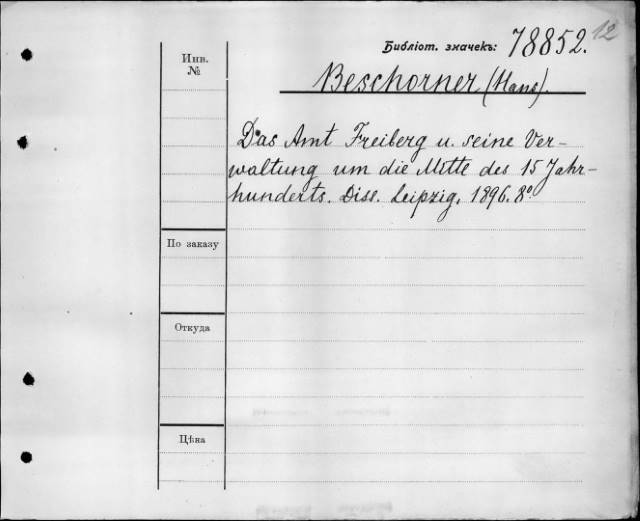 12
Библіот. значекъ: 78852.
Инв.
№
Beschorner (Hans).
Das Amt Freiberg u. seine Ver-
waltung um die Mitte des 15 Jahr-
hunderts. Diss. Leipzig, 1896. 8°
По заказу
Откуда
Цѣна